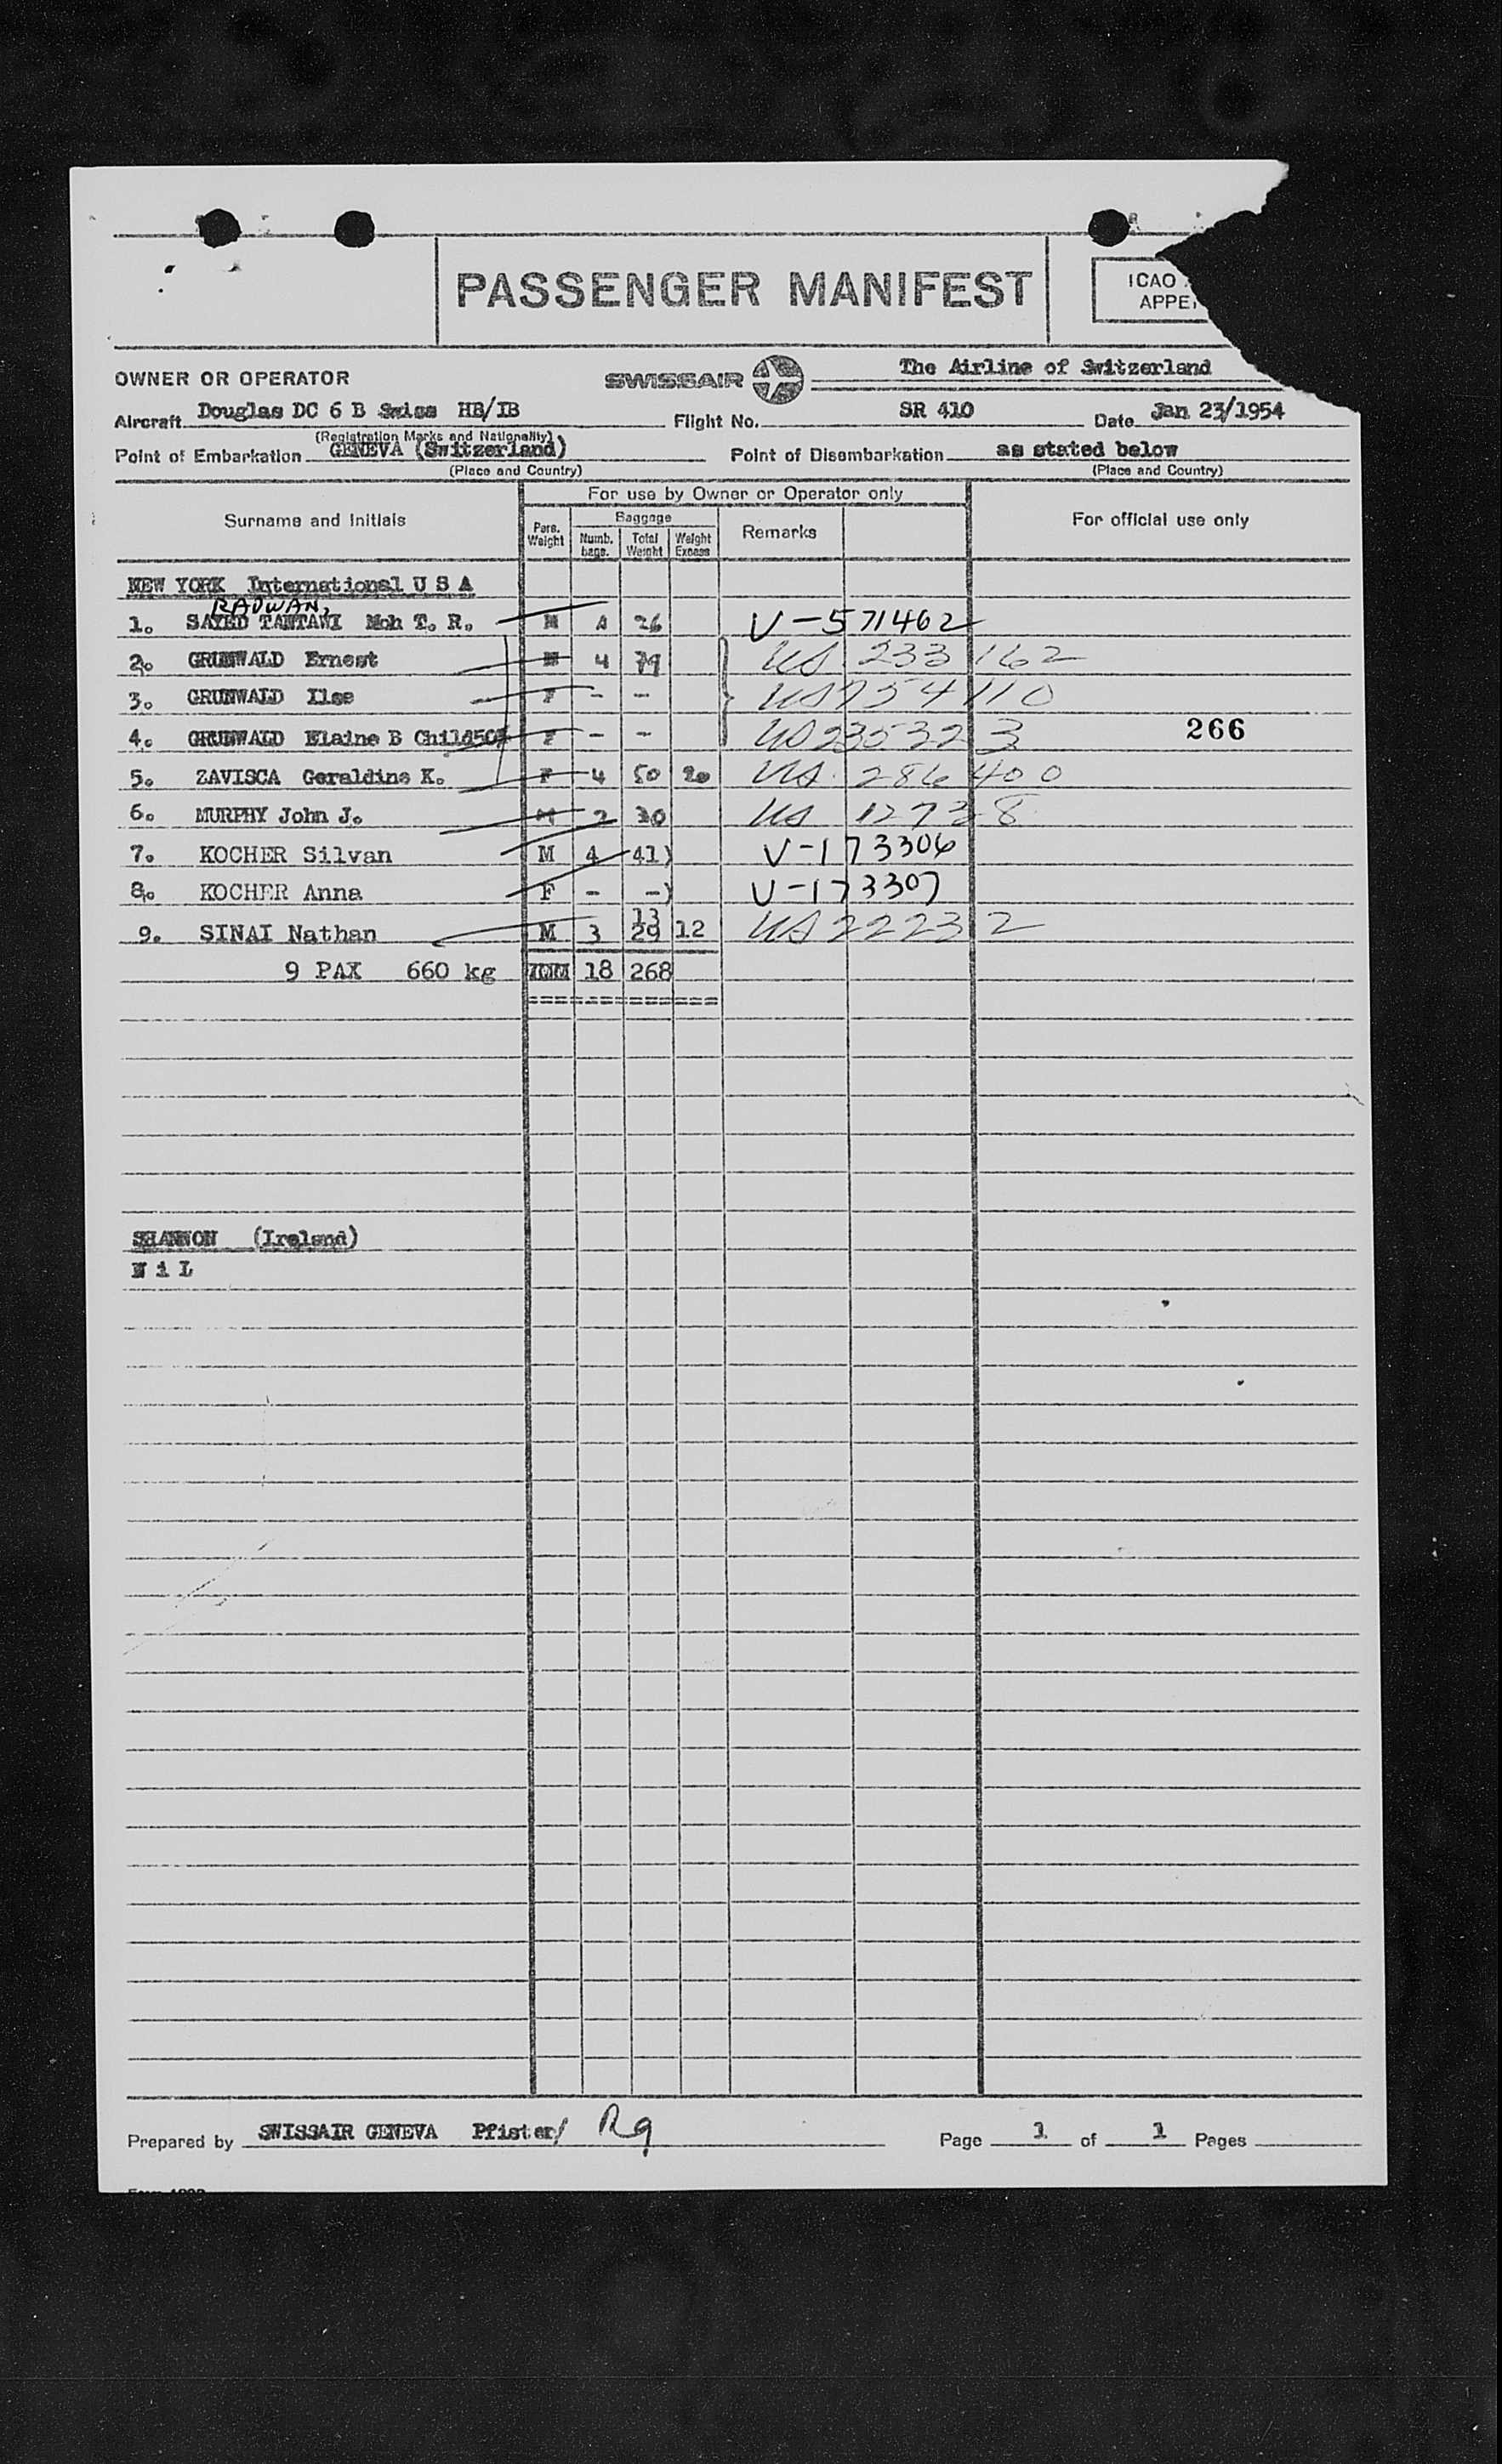 PASSENGER MANIFEST
ICAO
OWNER OR OPERATOR SWISSAIR The Airline of Switzerland
Aircraft Douglas DC 6 B Swiss HB/IB Flight No. SR 410 Date Jan 23/1954
(Registration Marks and Nationality)
Point of Embarkation GENEVA (Switzerland) Point of Disembarkation as stated below
(Place and Country) (Place and Country)
For use by Owner or Operator only
Surname and Initials Pers. Weight Baggage Numb. bags. Total Weight Weight Excess Remarks For official use only
NEW YORK International U S A
RADWAN,
1. SAYED TANTAWI Moh T. R. M 26 V-571462
2. GRUNWALD Ernest M 4 79 US 233 162
3. GRUNWALD Ilse F - - US 754110
4. GRUNWALD Elaine B Child50% F - - US 235323 266
5. ZAVISCA Geraldine K. F 4 50 20 US 286400
6. MURPHY John J. M 2 30 US 12738
7. KOCHER Silvan M 4 41) V-173306
8. KOCHER Anna F - -) V-173307
13
9. SINAI Nathan M 3 29 12 US 222312
9 PAX 660 kg 18 268
==============
SHANNON (Ireland)
N i L
Prepared by SWISSAIR GENEVA Pfister/ Rg Page 1 of 1 Pages